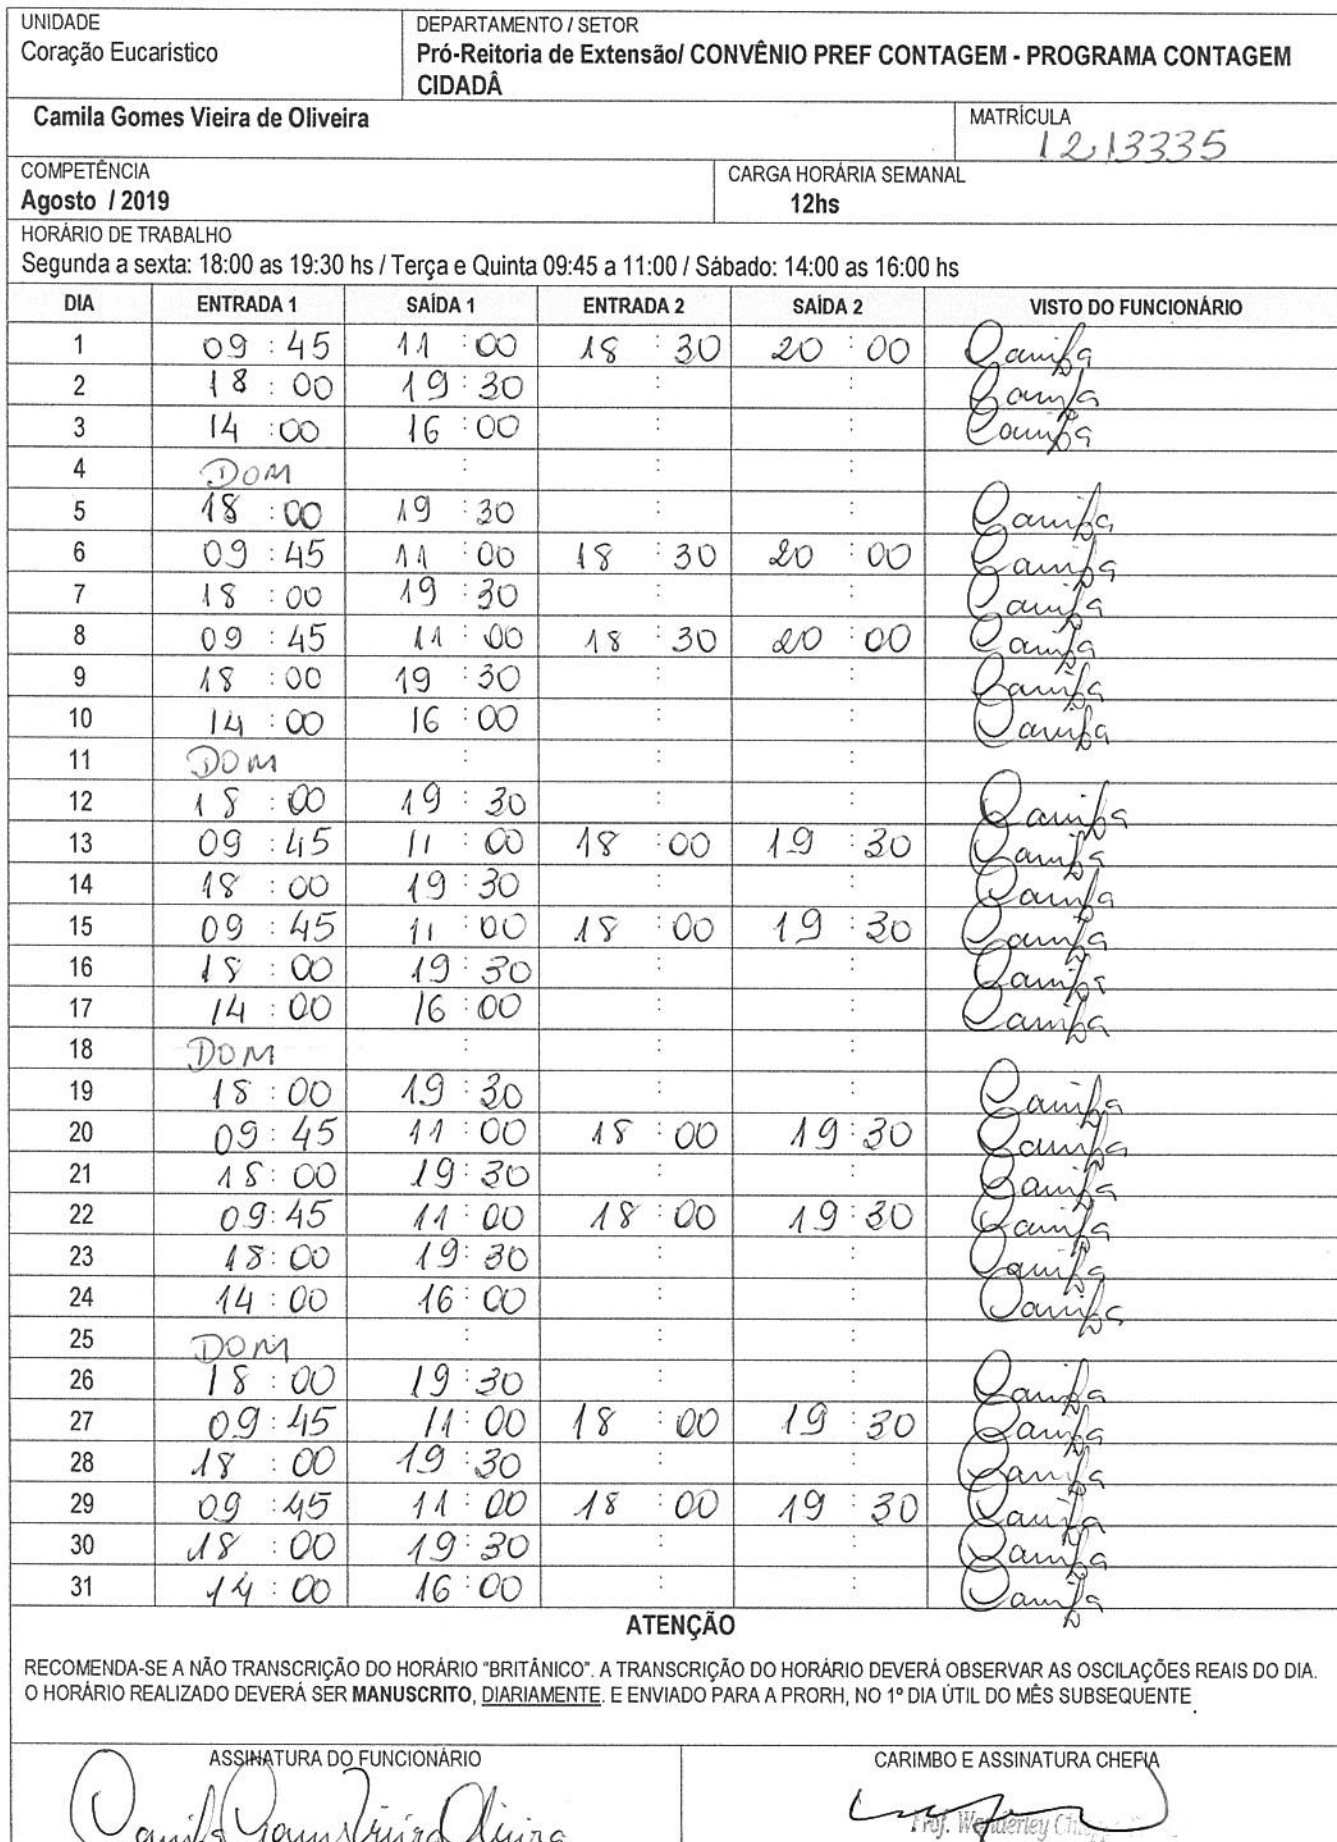 UNIDADE
Coração Eucarístico
DEPARTAMENTO / SETOR
Pró-Reitoria de Extensão/ CONVÊNIO PREF CONTAGEM - PROGRAMA CONTAGEM
CIDADÂ
Camila Gomes Vieira de Oliveira
MATRÍCULA
1213335
COMPETÊNCIA
Agosto / 2019
CARGA HORÁRIA SEMANAL
12hs
HORÁRIO DE TRABALHO
Segunda a sexta: 18:00 as 19:30 hs / Terça e Quinta 09:45 a 11:00 / Sábado: 14:00 as 16:00 hs
DIA ENTRADA 1 SAÍDA 1 ENTRADA 2 SAÍDA 2 VISTO DO FUNCIONÁRIO
1 09:45 11:00 18:30 20:00 Camila
2 18:00 19:30 : : Camila
3 14:00 16:00 : : Camila
4 DOM : : :
5 18:00 19:30 : : Camila
6 09:45 11:00 18:30 20:00 Camila
7 18:00 19:30 : : Camila
8 09:45 11:00 18:30 20:00 Camila
9 18:00 19:30 : : Camila
10 14:00 16:00 : : Camila
11 DOM : : :
12 18:00 19:30 : : Camila
13 09:45 11:00 18:00 19:30 Camila
14 18:00 19:30 : : Camila
15 09:45 11:00 18:00 19:30 Camila
16 18:00 19:30 : : Camila
17 14:00 16:00 : : Camila
18 DOM : : :
19 18:00 19:30 : : Camila
20 09:45 11:00 18:00 19:30 Camila
21 18:00 19:30 : : Camila
22 09:45 11:00 18:00 19:30 Camila
23 18:00 19:30 : : Camila
24 14:00 16:00 : : Camila
25 DOM : : :
26 18:00 19:30 : : Camila
27 09:45 11:00 18:00 19:30 Camila
28 18:00 19:30 : : Camila
29 09:45 11:00 18:00 19:30 Camila
30 18:00 19:30 : : Camila
31 14:00 16:00 : : Camila
ATENÇÃO
RECOMENDA-SE A NÃO TRANSCRIÇÃO DO HORÁRIO "BRITÂNICO". A TRANSCRIÇÃO DO HORÁRIO DEVERÁ OBSERVAR AS OSCILAÇÕES REAIS DO DIA.
O HORÁRIO REALIZADO DEVERÁ SER MANUSCRITO, DIARIAMENTE. E ENVIADO PARA A PRORH, NO 1º DIA ÚTIL DO MÊS SUBSEQUENTE.
ASSINATURA DO FUNCIONÁRIO
Camila Gomes Vieira Oliveira
CARIMBO E ASSINATURA CHEFIA
Prof. Wanderley